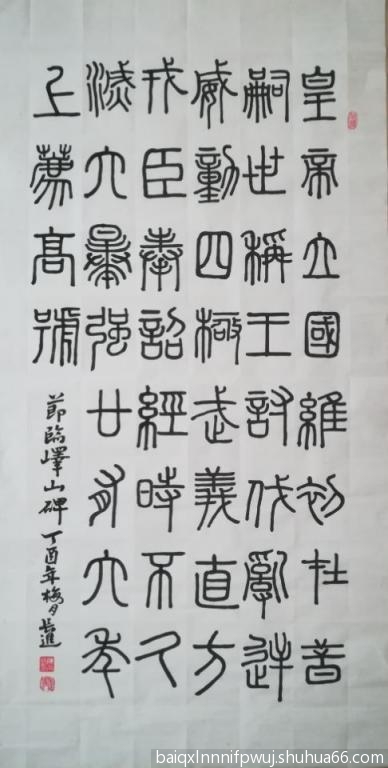 皇帝立國維初在昔
嗣世稱王討伐亂逆
威動四極武義直方
戎臣奉詔經時不久
滅六暴强廿有六年
上薦高號
節臨嶧山碑丁酉年梅月
baiqxlnnnifpwuj.shuhua66.com